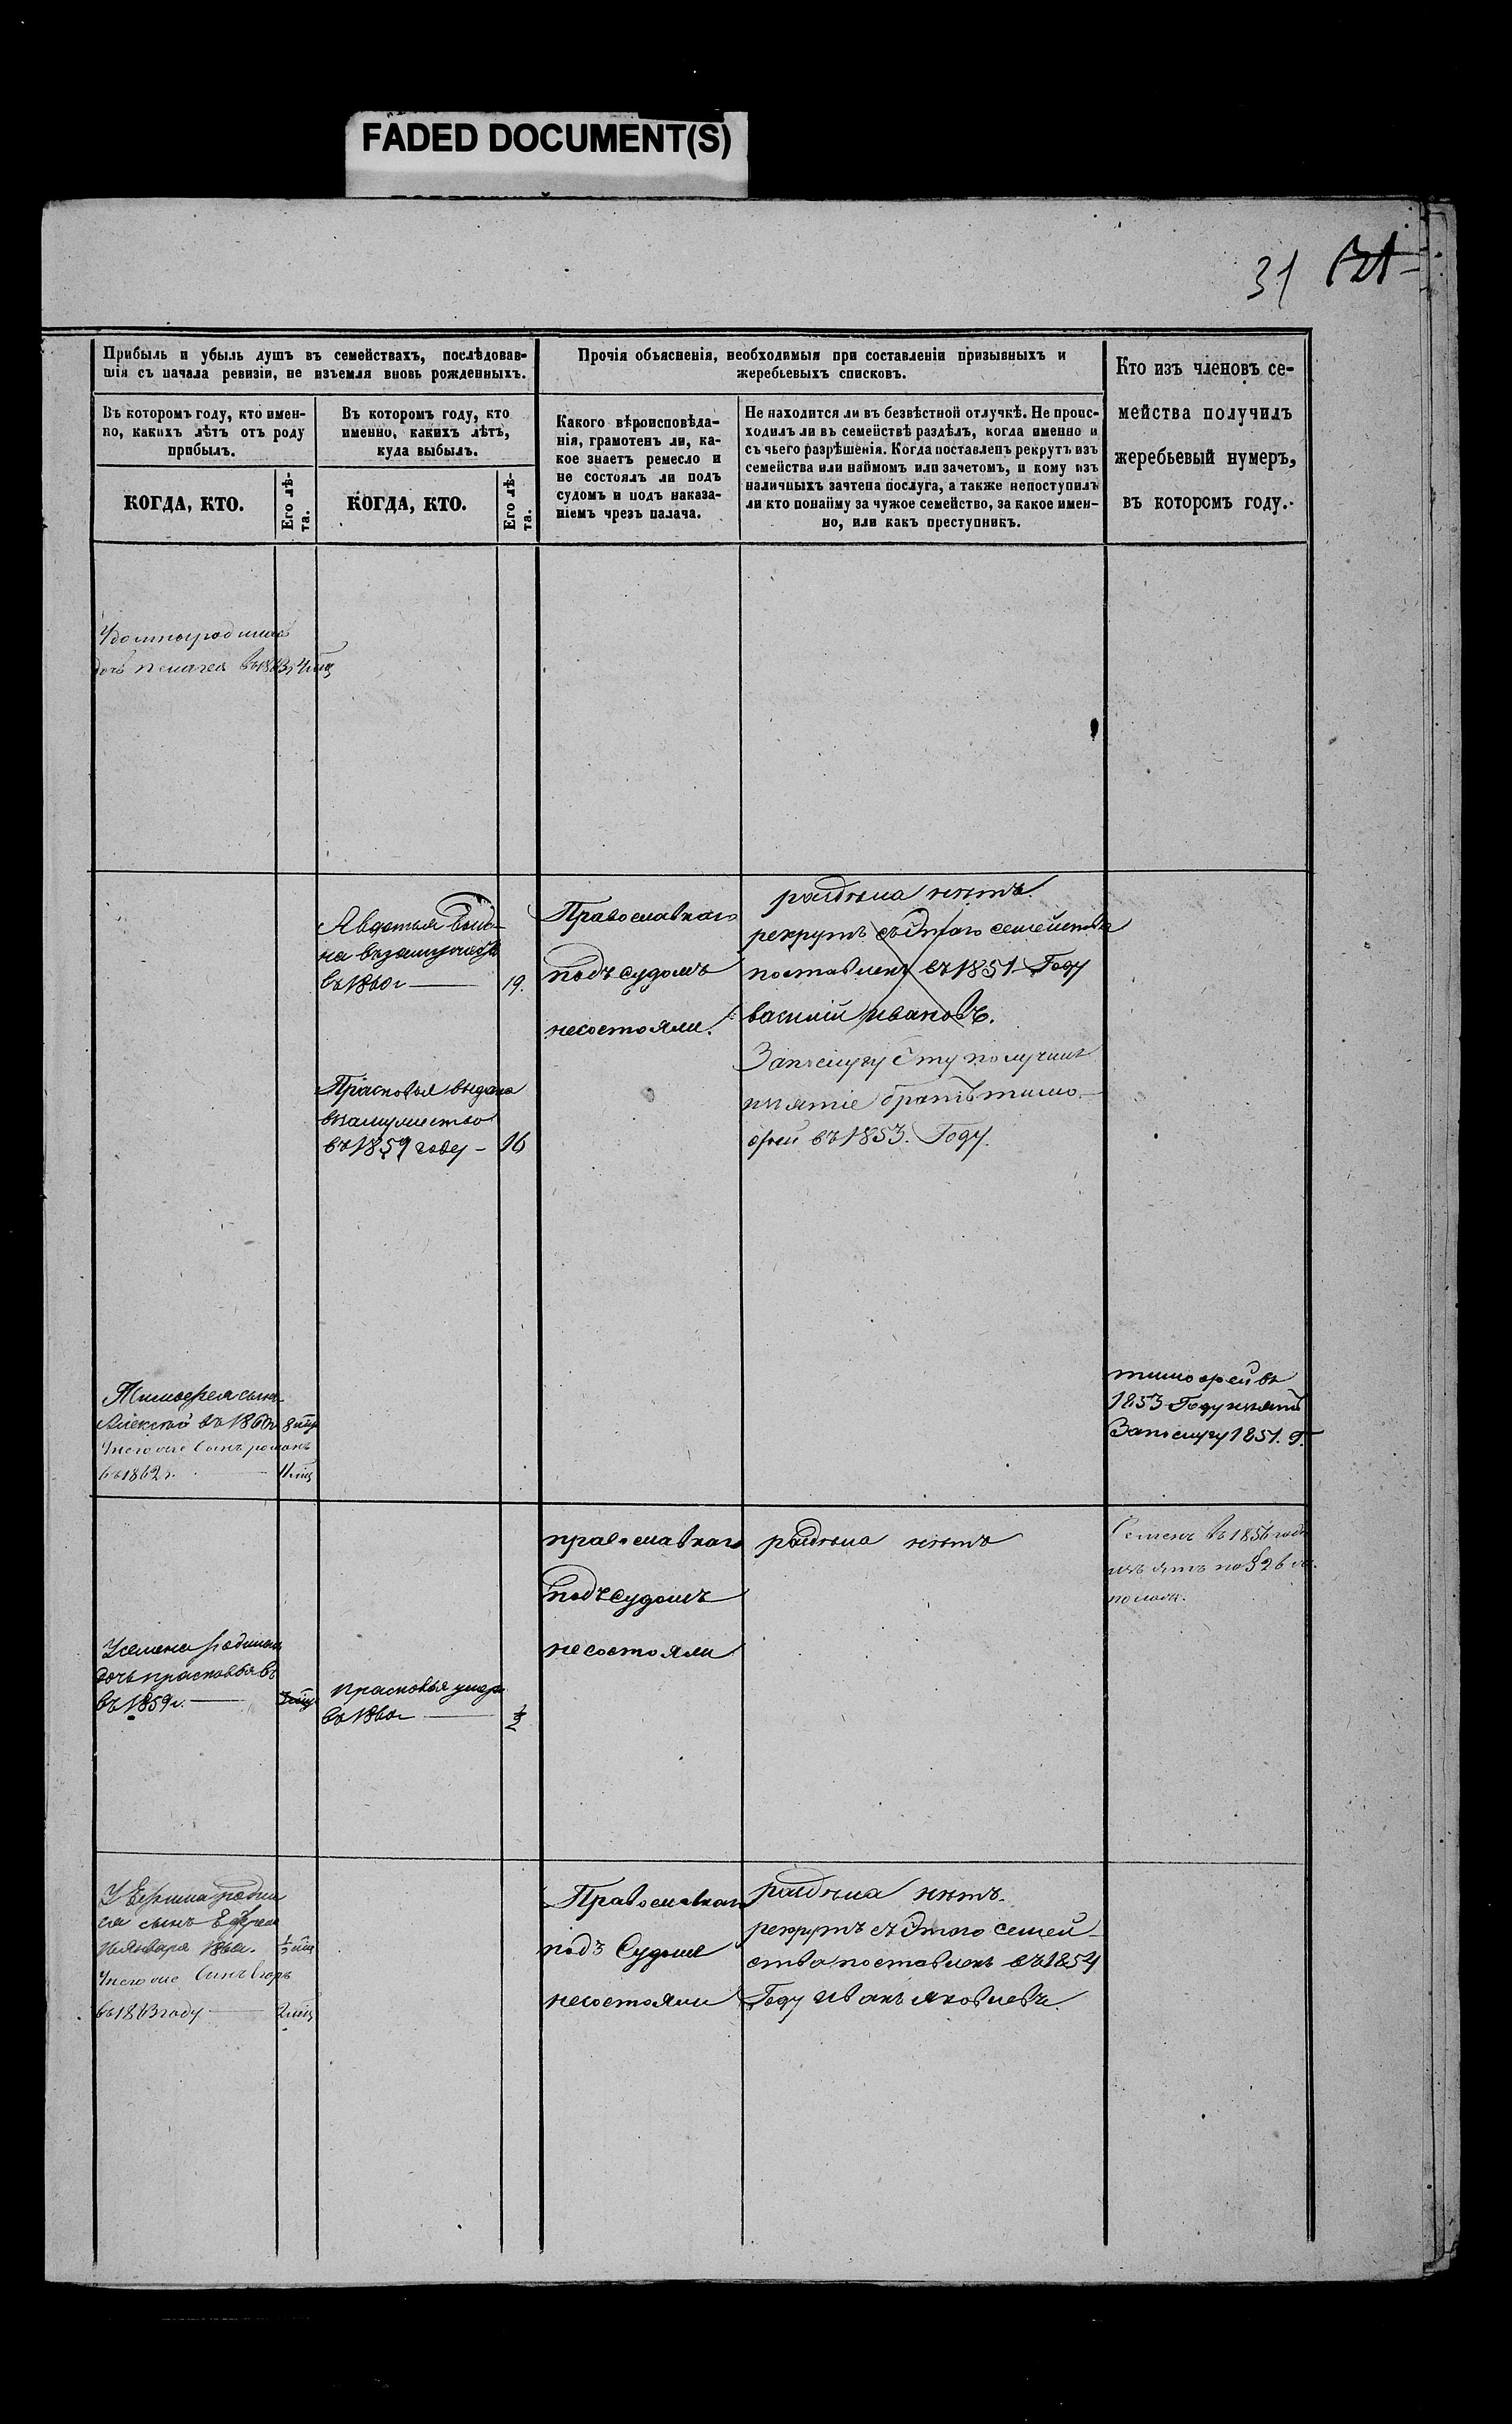 FADED DOCUMENT(S)
31
Прибыль и убыль душъ въ семействахъ, послѣдовав-
шія съ начала ревизіи, не изъемля вновь рожденныхъ.
Прочія объясненія, необходимыя при составленіи призывныхъ и
жеребьевыхъ списковъ.
Кто изъ членовъ се-
мейства получилъ
жеребьевый нумеръ,
въ которомъ году.
Въ которомъ году, кто имен-
но, какихъ лѣтъ отъ роду
прибылъ.
Въ которомъ году, кто
именно, какихъ лѣтъ,
куда выбылъ.
Какого вѣроисповѣда-
нія, грамотенъ ли, ка-
кое знаетъ ремесло и
не состоялъ ли подъ
судомъ и подъ наказа-
ніемъ чрезъ палача.
Не находится ли въ безвѣстной отлучкѣ. Не проис-
ходилъ ли въ семействѣ раздѣлъ, когда именно и
съ чьего разрѣшенія. Когда поставленъ рекрутъ изъ
семейства или наймомъ или зачетомъ, и кому изъ
наличныхъ зачтена послуга, а также непоступилъ
ли кто понайму за чужое семейство, за какое имен-
но, или какъ преступникъ.
КОГДА, КТО.
Его лѣ-
та.
КОГДА, КТО.
Его лѣ-
та.
дочь пелагея въ 1863
Авдотья выда-
на взамужество
въ 1860 г 19.
Прасковья выдана
взамужество
въ 1859 году - 16
Православнаго
подъ судомъ
несостояли.
раздѣла нѣтъ.
рекрутъ съ этаго семейства
поставленъ въ 1851 Году
василий ивановъ.
Запослугу эту получилъ
изъятіе братъ тимо-
фей въ 1853. Году.
Тимофея сынъ
Алексей въ 1860 г 8 мц
Унего же сынъ романъ
въ 1862 г. 11 мц
тимофей въ
1853 Году изъятъ
Запослугу 1851. Г.
православнаго
подъ судомъ
несостояли
раздѣла нѣтъ
Семенъ въ 1856 годѣ
изъятъ по § 26
Усемена родилась
дочь прасковья въ
въ 1859 г.
прасковья умерла
въ 1860 г ½
У Ефима родил
ся сынъ Ефремъ
января
Унего же Сынъ Егоръ
въ 1863 году 2 мц
Православнаго
подъ Судомъ
несостояли
раздѣла нѣтъ.
рекрутъ съ этого семей-
ства поставленъ въ 1854
Году Иванъ яковлевъ.